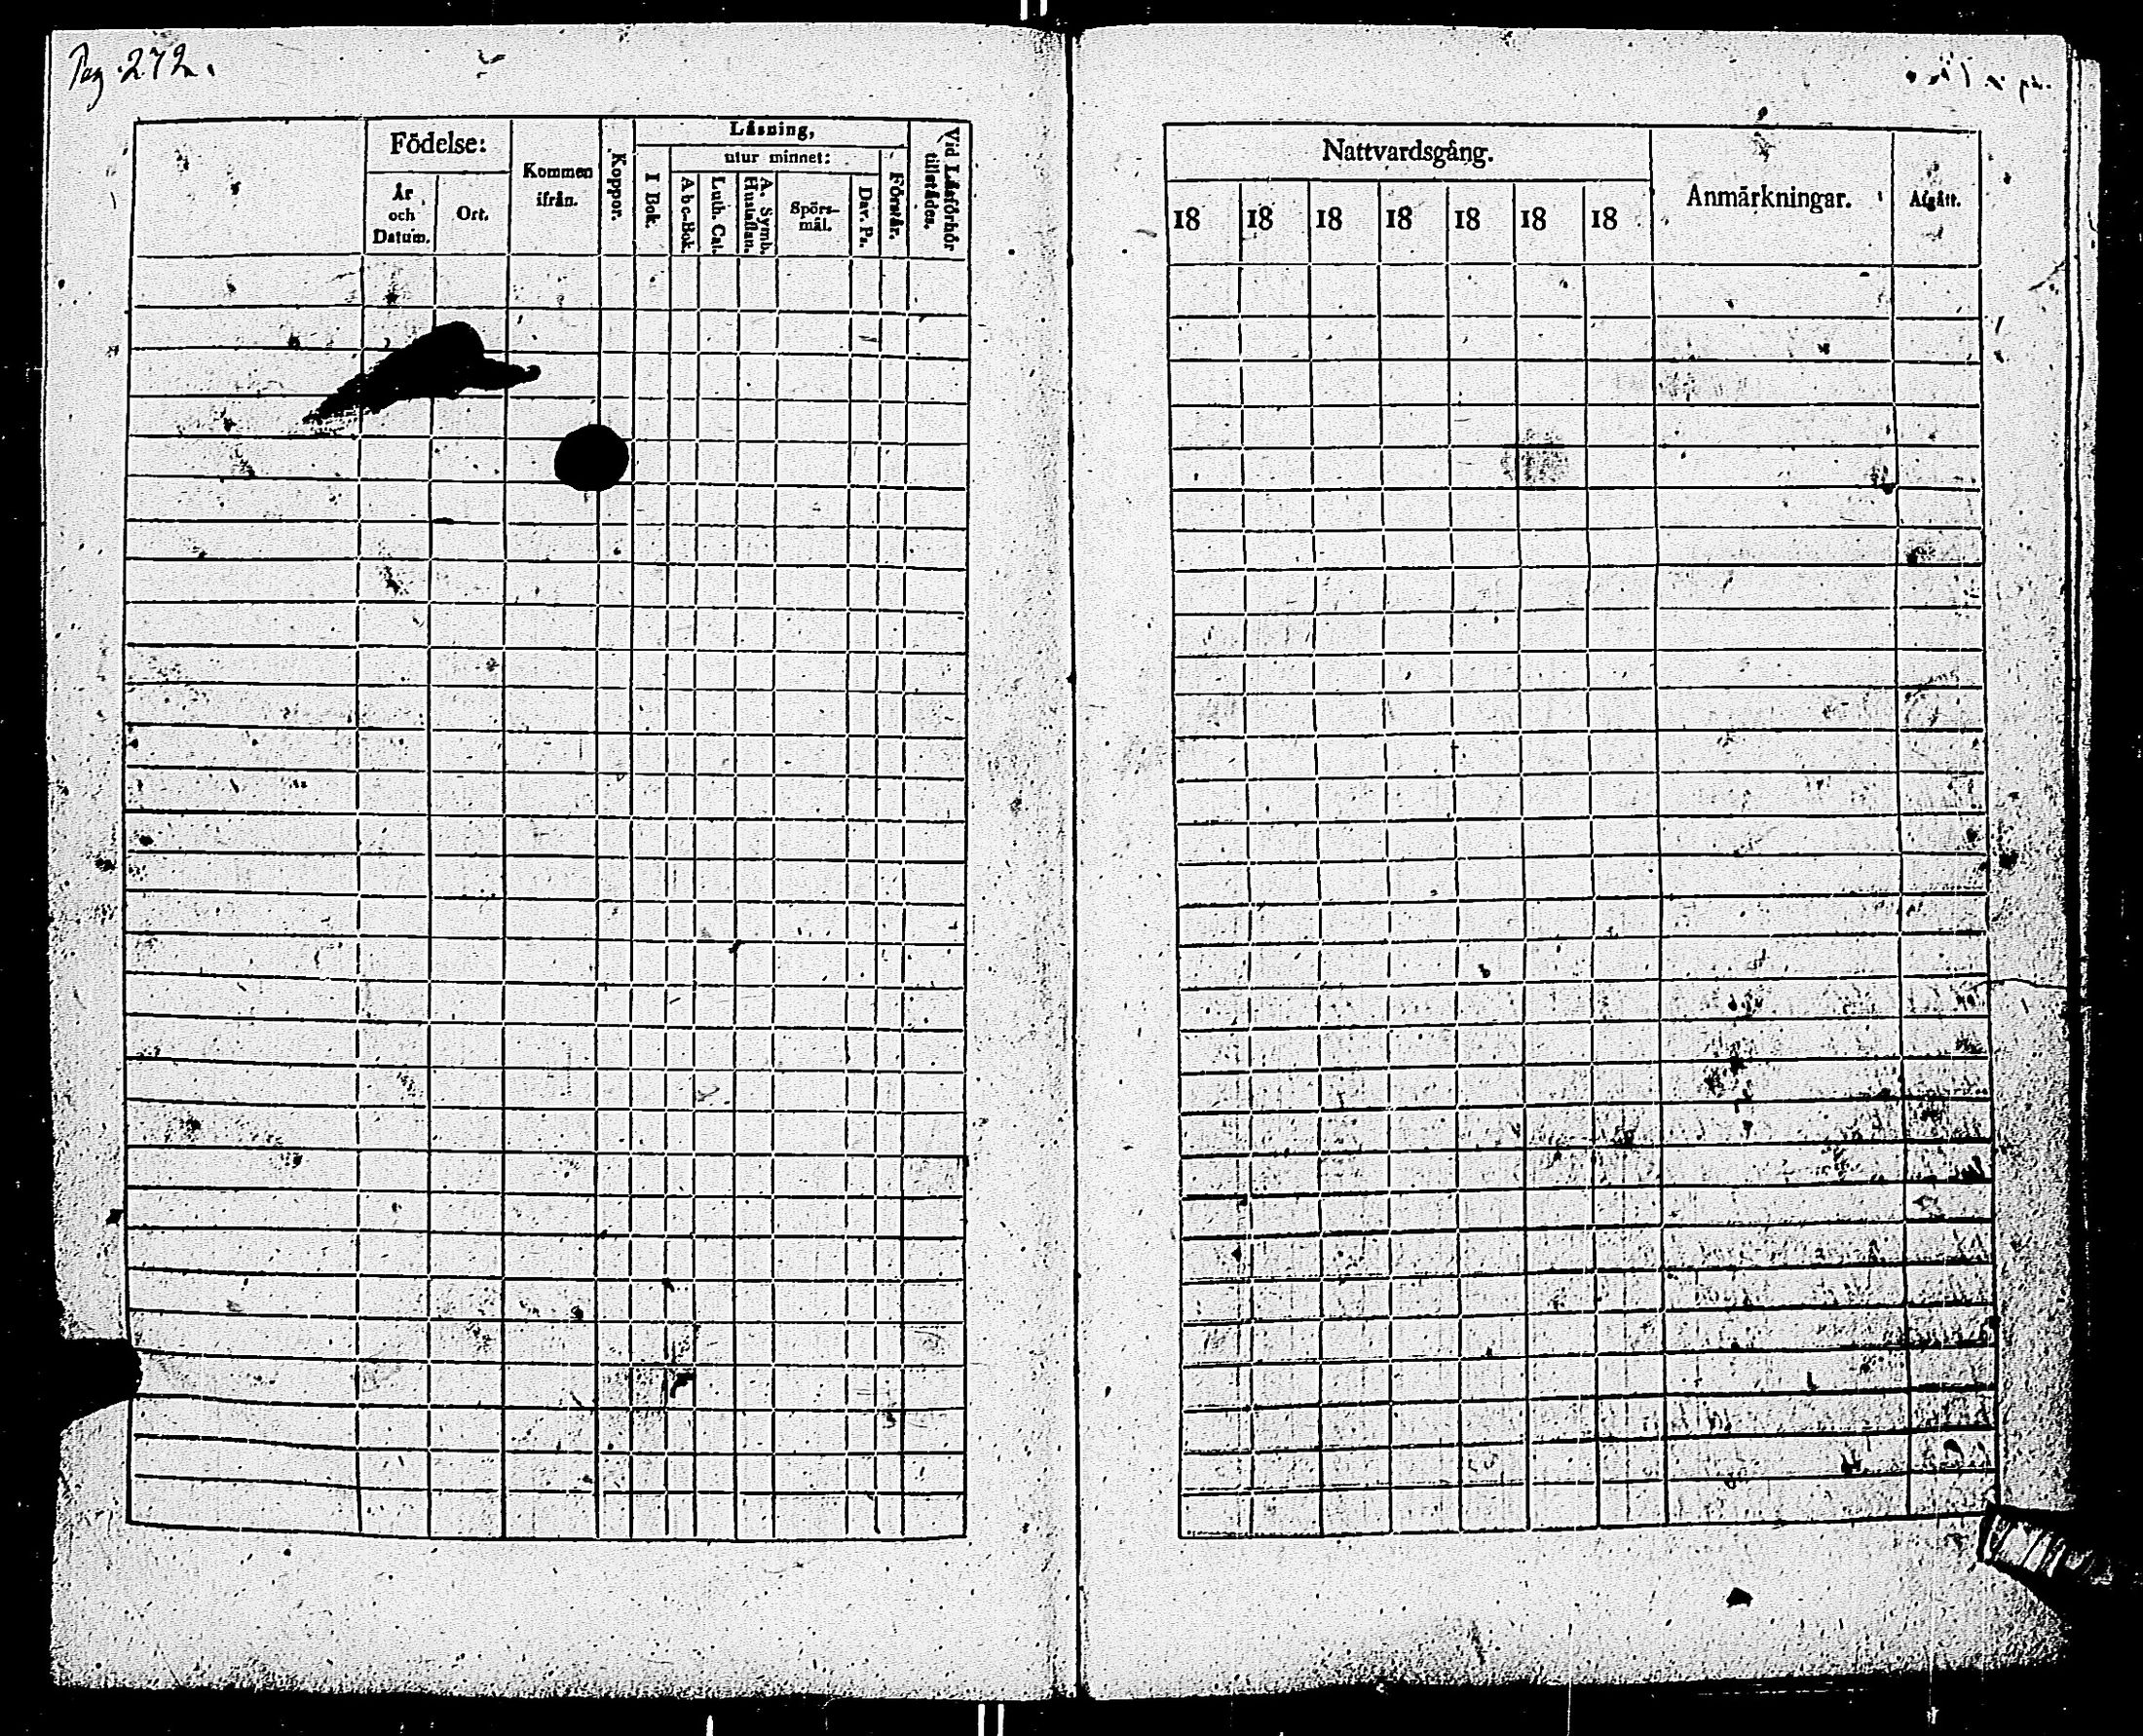 Pag. 272.
Födelse:
År
och
Datum.
Ort.
Kommen
ifrån.
Koppor.
Läsning,
I Bok.
utur minnet:
Abc-Bok
Luth. Cat.
A. Symb.
Hustaflan.
Spörs-
mål.
Dav. Ps.
Förstår.
Vid Läsförhör
tillstådes.
Nattvardsgång.
18 18 18 18 18 18 18
Anmärkningar.
Afgått.